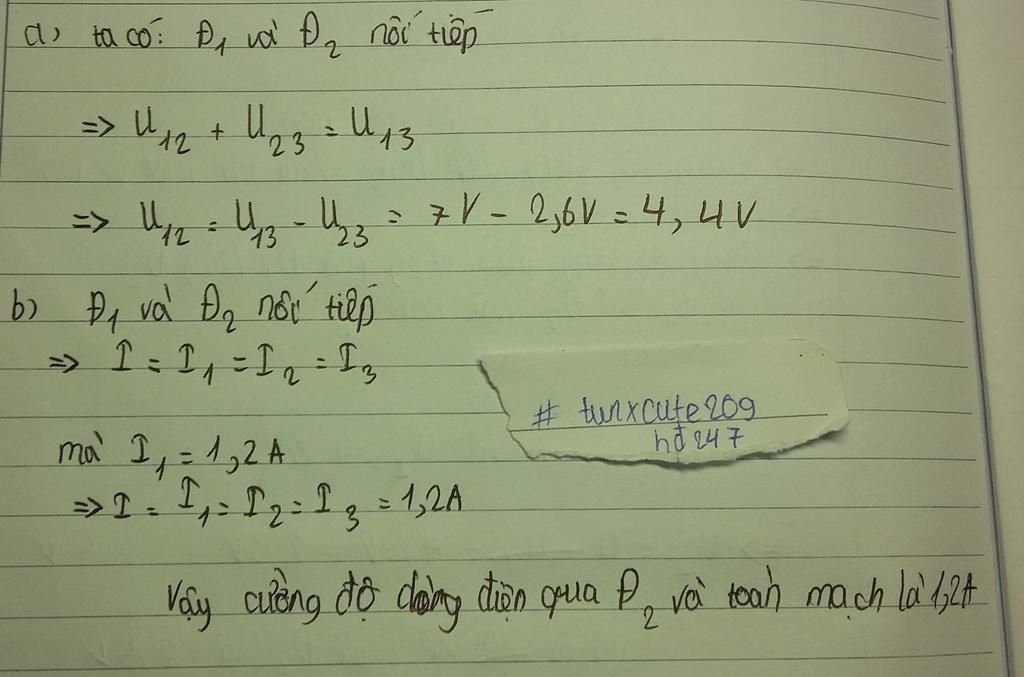 a) ta có: Đ1 và Đ2 nối tiếp
=> U12 + U23 = U13
=> U12 = U13 - U23 = 7V - 2,6V = 4,4V
b) Đ1 và Đ2 nối tiếp
=> I = I1 = I2 = I3
# tunxcute209
hđ247
mà I1 = 1,2A
=> I = I1 = I2 = I3 = 1,2A
Vậy cường độ dòng điện qua Đ2 và toàn mạch là 1,2A